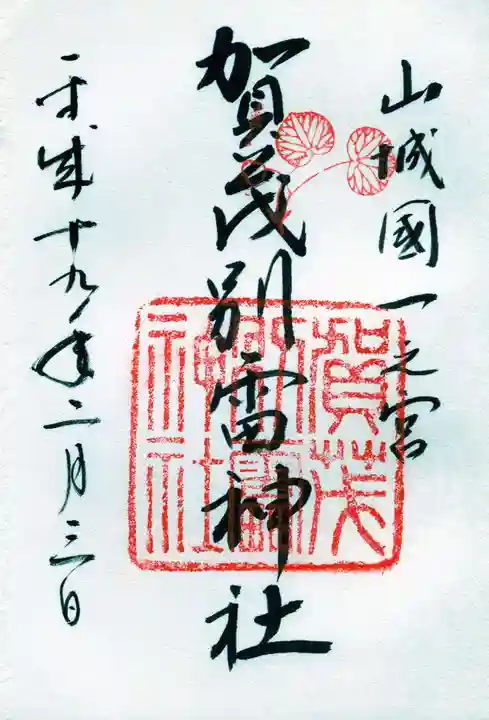 山城國一之宮
賀茂別雷神社
賀茂別雷神社
平成十九年二月三日